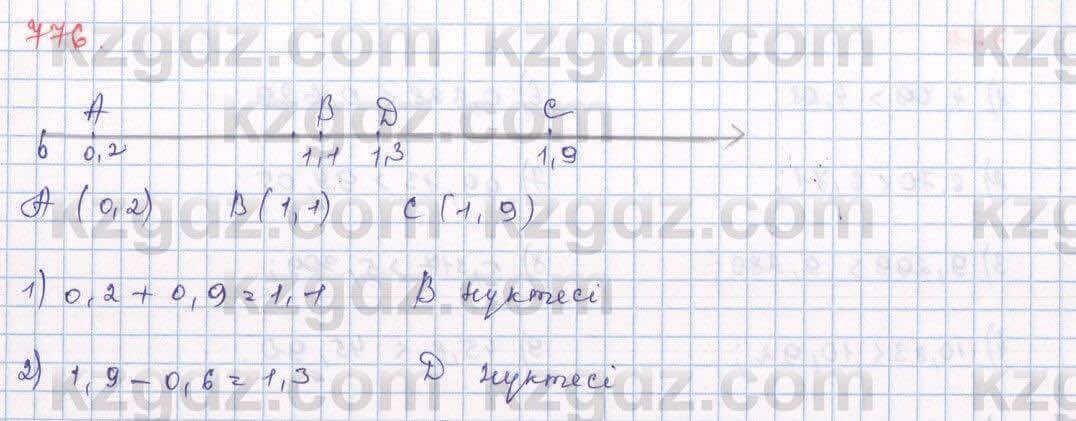 776.
A B D C
0 0,2 1,1 1,3 1,9
A (0,2) B (1,1) C (1,9)
1) 0,2 + 0,9 = 1,1 B нүктесі
2) 1,9 - 0,6 = 1,3 D нүктесі
kzgdz.com